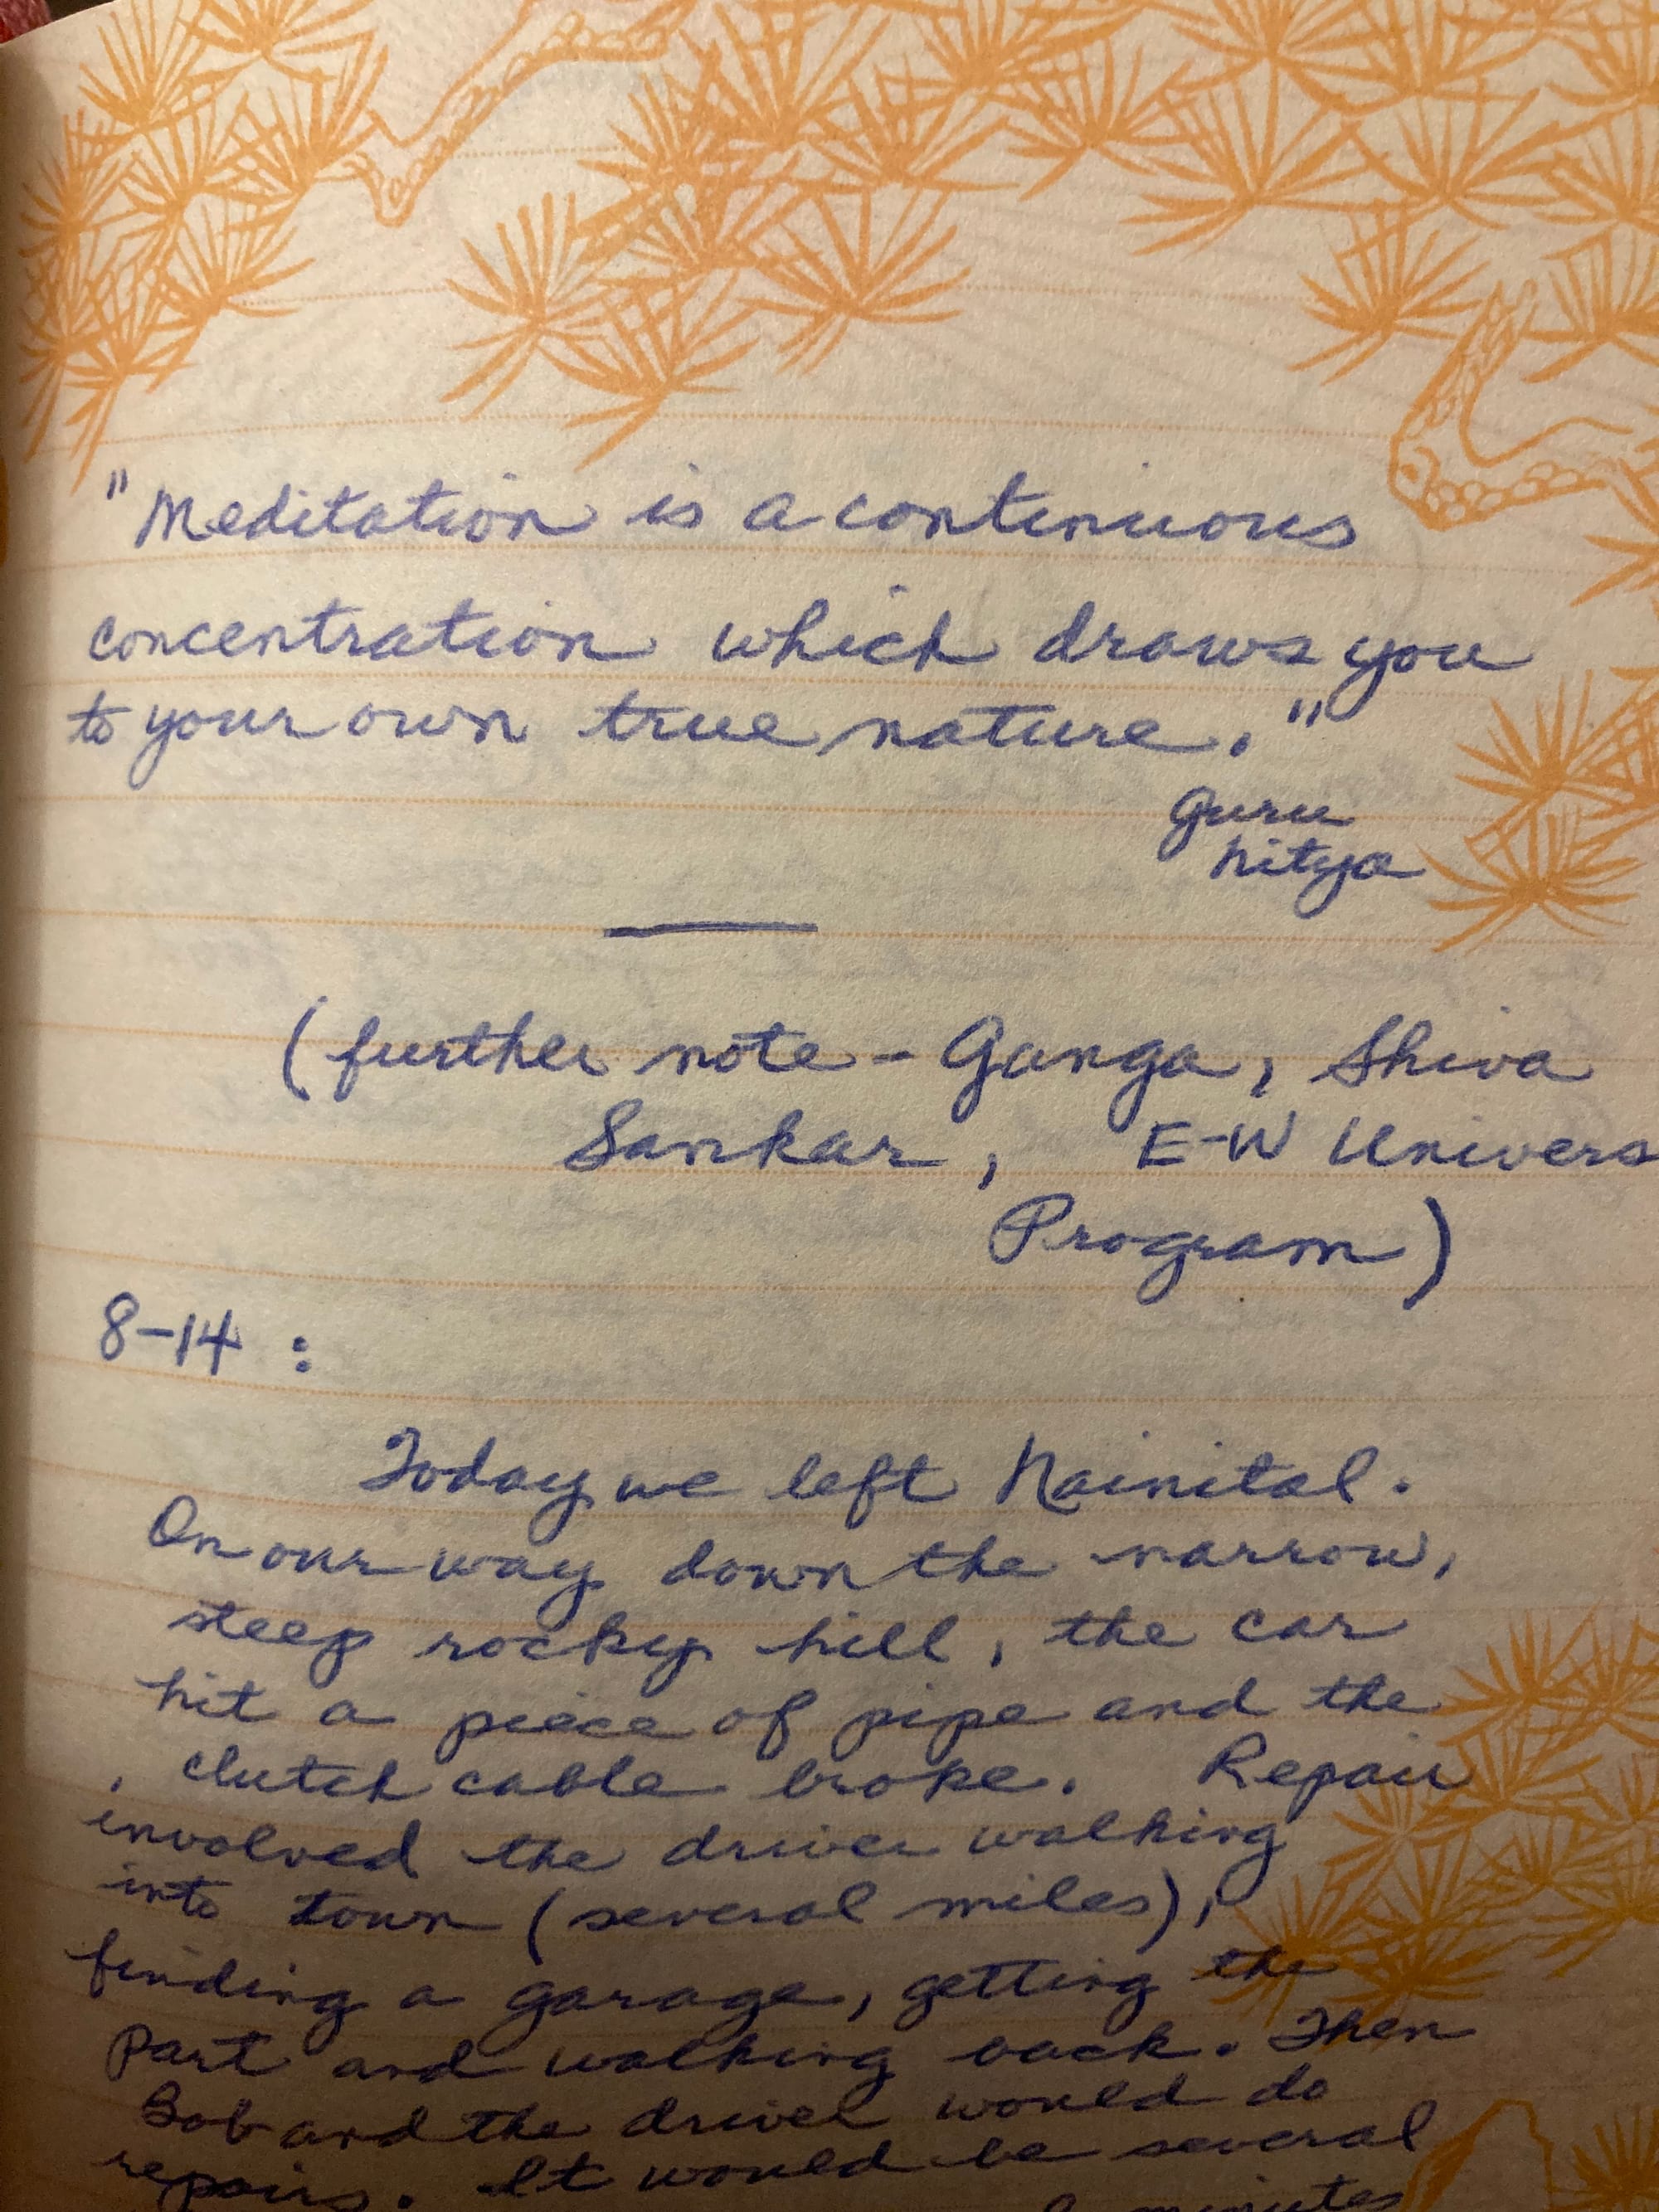 "Meditation is a continuous
concentration which draws you
to your own true nature."
Guru
Nitya
(further note - Ganga, Shiva
Sankar, E-W Univers
Program)
8-14 :
Today we left Nainital.
On our way down the narrow,
steep rocky hill, the car
hit a piece of pipe and the
clutch cable broke. Repair
involved the driver walking
into town (several miles),
finding a garage, getting the
part and walking back. Then
Bob and the driver would do
repairs. It would be several
minutes